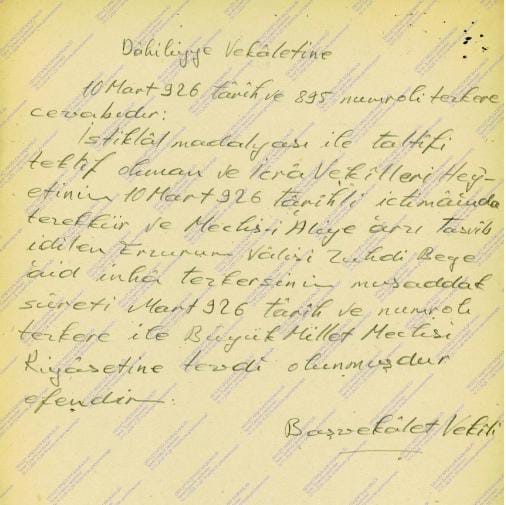 Dâhiliyye Vekâletine
10 Mart 926 târih ve 895 numroli tezkere
cevabıdır:
İstiklâl madalyası ile taltifi
teklif olunan ve İcrâ Vekilleri Hey-
etinin 10 Mart 926 târihli ictimâında
tezekkür ve Meclis-i Âliye arzı tasvib
idilen Erzurum Vâlisi Zuhdi Beye
âid inhâ tezkersinin musaddak
sûreti Mart 926 târih ve numrolı
tezkere ile Büyük Millet Meclisi
Riyâsetine tevdi olunmuşdur
efendim.
Başvekâlet Vekili